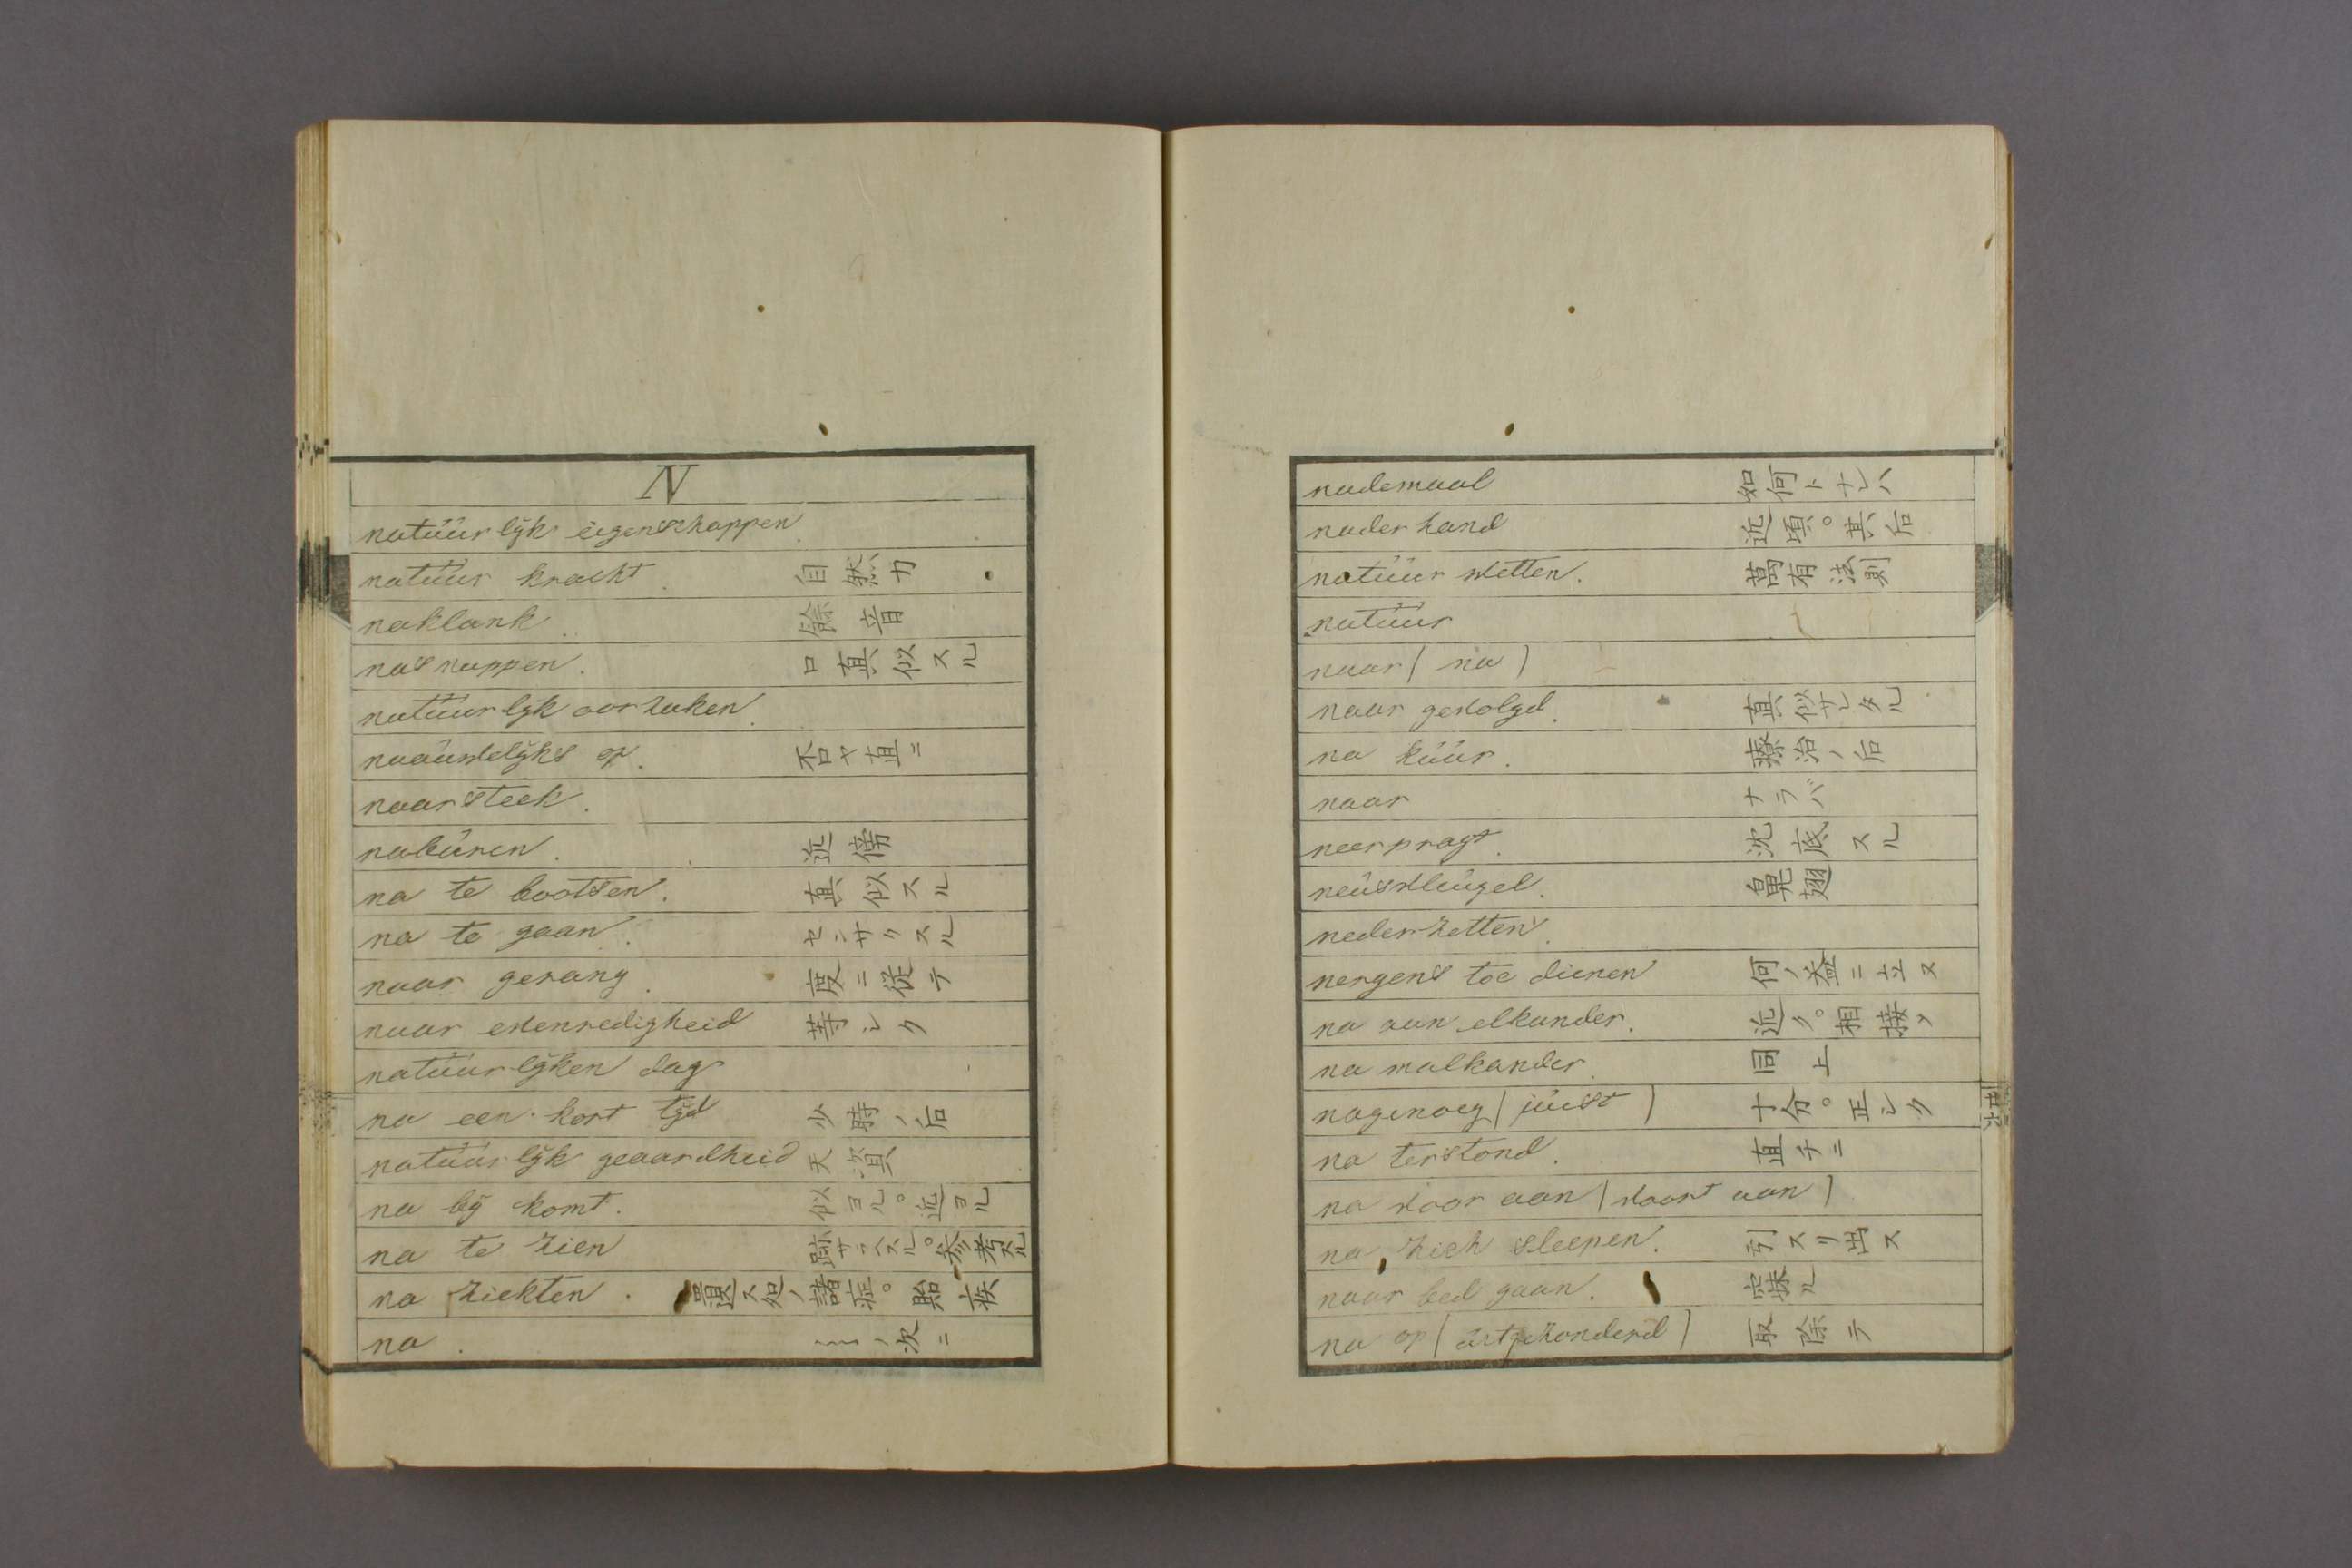 N
natüürlijk eigenschappen.
natüür kracht. 自然力
naklank. 餘音
nasnappen. 口真似スル
natüürlijk oorzaken.
naaüwelijks op. 否ヤ直ニ
naarsteek.
nabüren. 近傍
na te bootsen. 真似スル
na te gaan. センサクスル
naar gerang. 度ニ従テ
naar evenredigheid 等シク
natüürlijken dag
na een kort tijd 少時ノ后
natüürlijk geaardheid 天資
na bij komt. 似ヨル。近ヨル
na te zien 跡サラヘスル。参考スル
na ziekten. 遺ス処ノ諸症。貽疾
na. ノ次ニ
nademaal 如何トナレハ
naderhand 近頃。其后
natüür wetten. 萬有法則
natüür
naar (na)
naar gevolgd. 真似サレタル
na küür. 療治ノ后
naar ナラバ
neerpragt. 沈底スル
neüsvleügel. 鼻翅
nederzetten.
nergens toe dienen 何ノ益ニ立ヌ
na aan elkander. 近ク。相接メ
na malkander. 同上
nagenoeg (jüist) 十分。正シク
na terstond. 直チニ
na voor aan (voort aan)
na zich sleepen. 引スリ出ス
naar bed gaan. 寐ル
na op (üitgezonderd) 取除テ